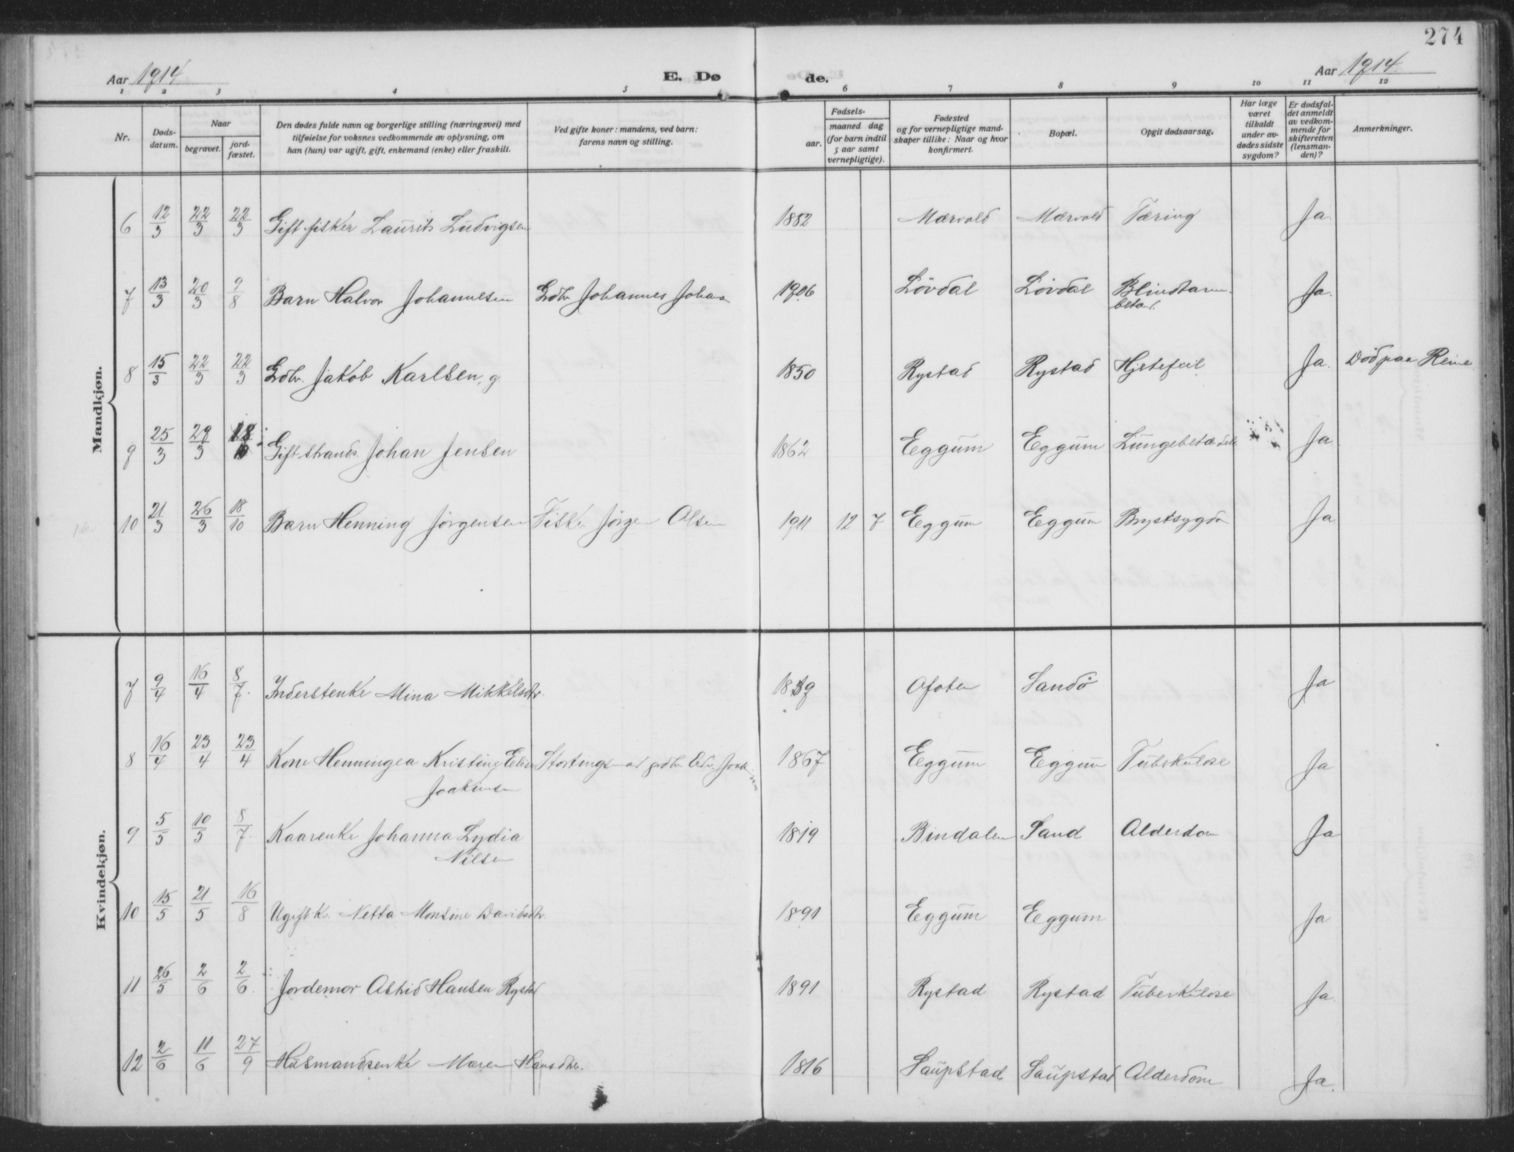 274
Aar 1914
E. Dø
de.
Aar 1914
1 2 3 4 5 6 7 8 9 10 11 12
Nr.
Døds-
datum.
Naar
begravet.
jord-
fæstet.
Den dødes fulde navn og borgerlige stilling (næringsvei) med
tilføielse for voksnes vedkommende av oplysning, om
han (hun) var ugift, gift, enkemand (enke) eller fraskilt.
Ved gifte koner: mandens, ved barn:
farens navn og stilling.
Fødsels-
aar.
maaned dag
(for barn indtil
5 aar samt
vernepligtige).
Fødested
og for vernepligtige mand-
skaper tillike: Naar og hvor
konfirmert.
Bopæl.
Opgit dødsaarsag.
Har læge
været
tilkaldt
under av-
dødes sidste
sygdom?
Er dødsfal-
det anmeldt
av vedkom-
mende for
skifteretten
(lensman-
den)?
Anmerkninger.
Mandkjøn.
6 12/3 22/3 22/3 Gift fisker Laurits Ludvigsen 1882 Mærvold Mærvold Tæring Ja
7 13/3 20/3 9/8 Barn Halvor Johannesen Gdbr. Johannes Johan 1906 Lövdal Lövdal Blindtarm- Ja
betæ.
8 15/3 22/3 22/3 Gdbr. Jakob Karlsen, g. 1850 Rystad Rystad Hjertefeil Ja Död paa Reine
9 25/3 29/3 Gift strands. Johan Jensen 1862 Eggum Eggum Lungebetændelse Ja
10 21/3 26/3 18/10 Barn Henning Jörgensen Fisker Jörgen Olsen 1911 12 7 Eggum Eggum Brystsygdom Ja
Kvindekjøn.
7 9/4 16/4 8/7 Inderstenke Mina Mikkelsdtr. Ofoten Sandö Ja
8 16/4 23/4 23/4 Kone Henningea Kristine Elise Stortingsmand gdbr. 1867 Eggum Eggum Tuberkulose Ja
Joakimsen
9 5/5 10/5 8/7 Kaarenke Johanna Lydia 1819 Bindalen Sand Alderdom Ja
Nilsen
10 15/5 21/5 16/8 Ugift k. Netta Monsine Davidsdtr. 1891 Eggum Eggum Ja
11 26/5 2/6 2/6 Jordemor Astrid Hansen Rystad 1891 Rystad Rystad Tuberkulose Ja
12 2/6 11/6 27/9 Husmandsenke Maren Hansdtr. 1816 Saupstad Saupstad Alderdom Ja